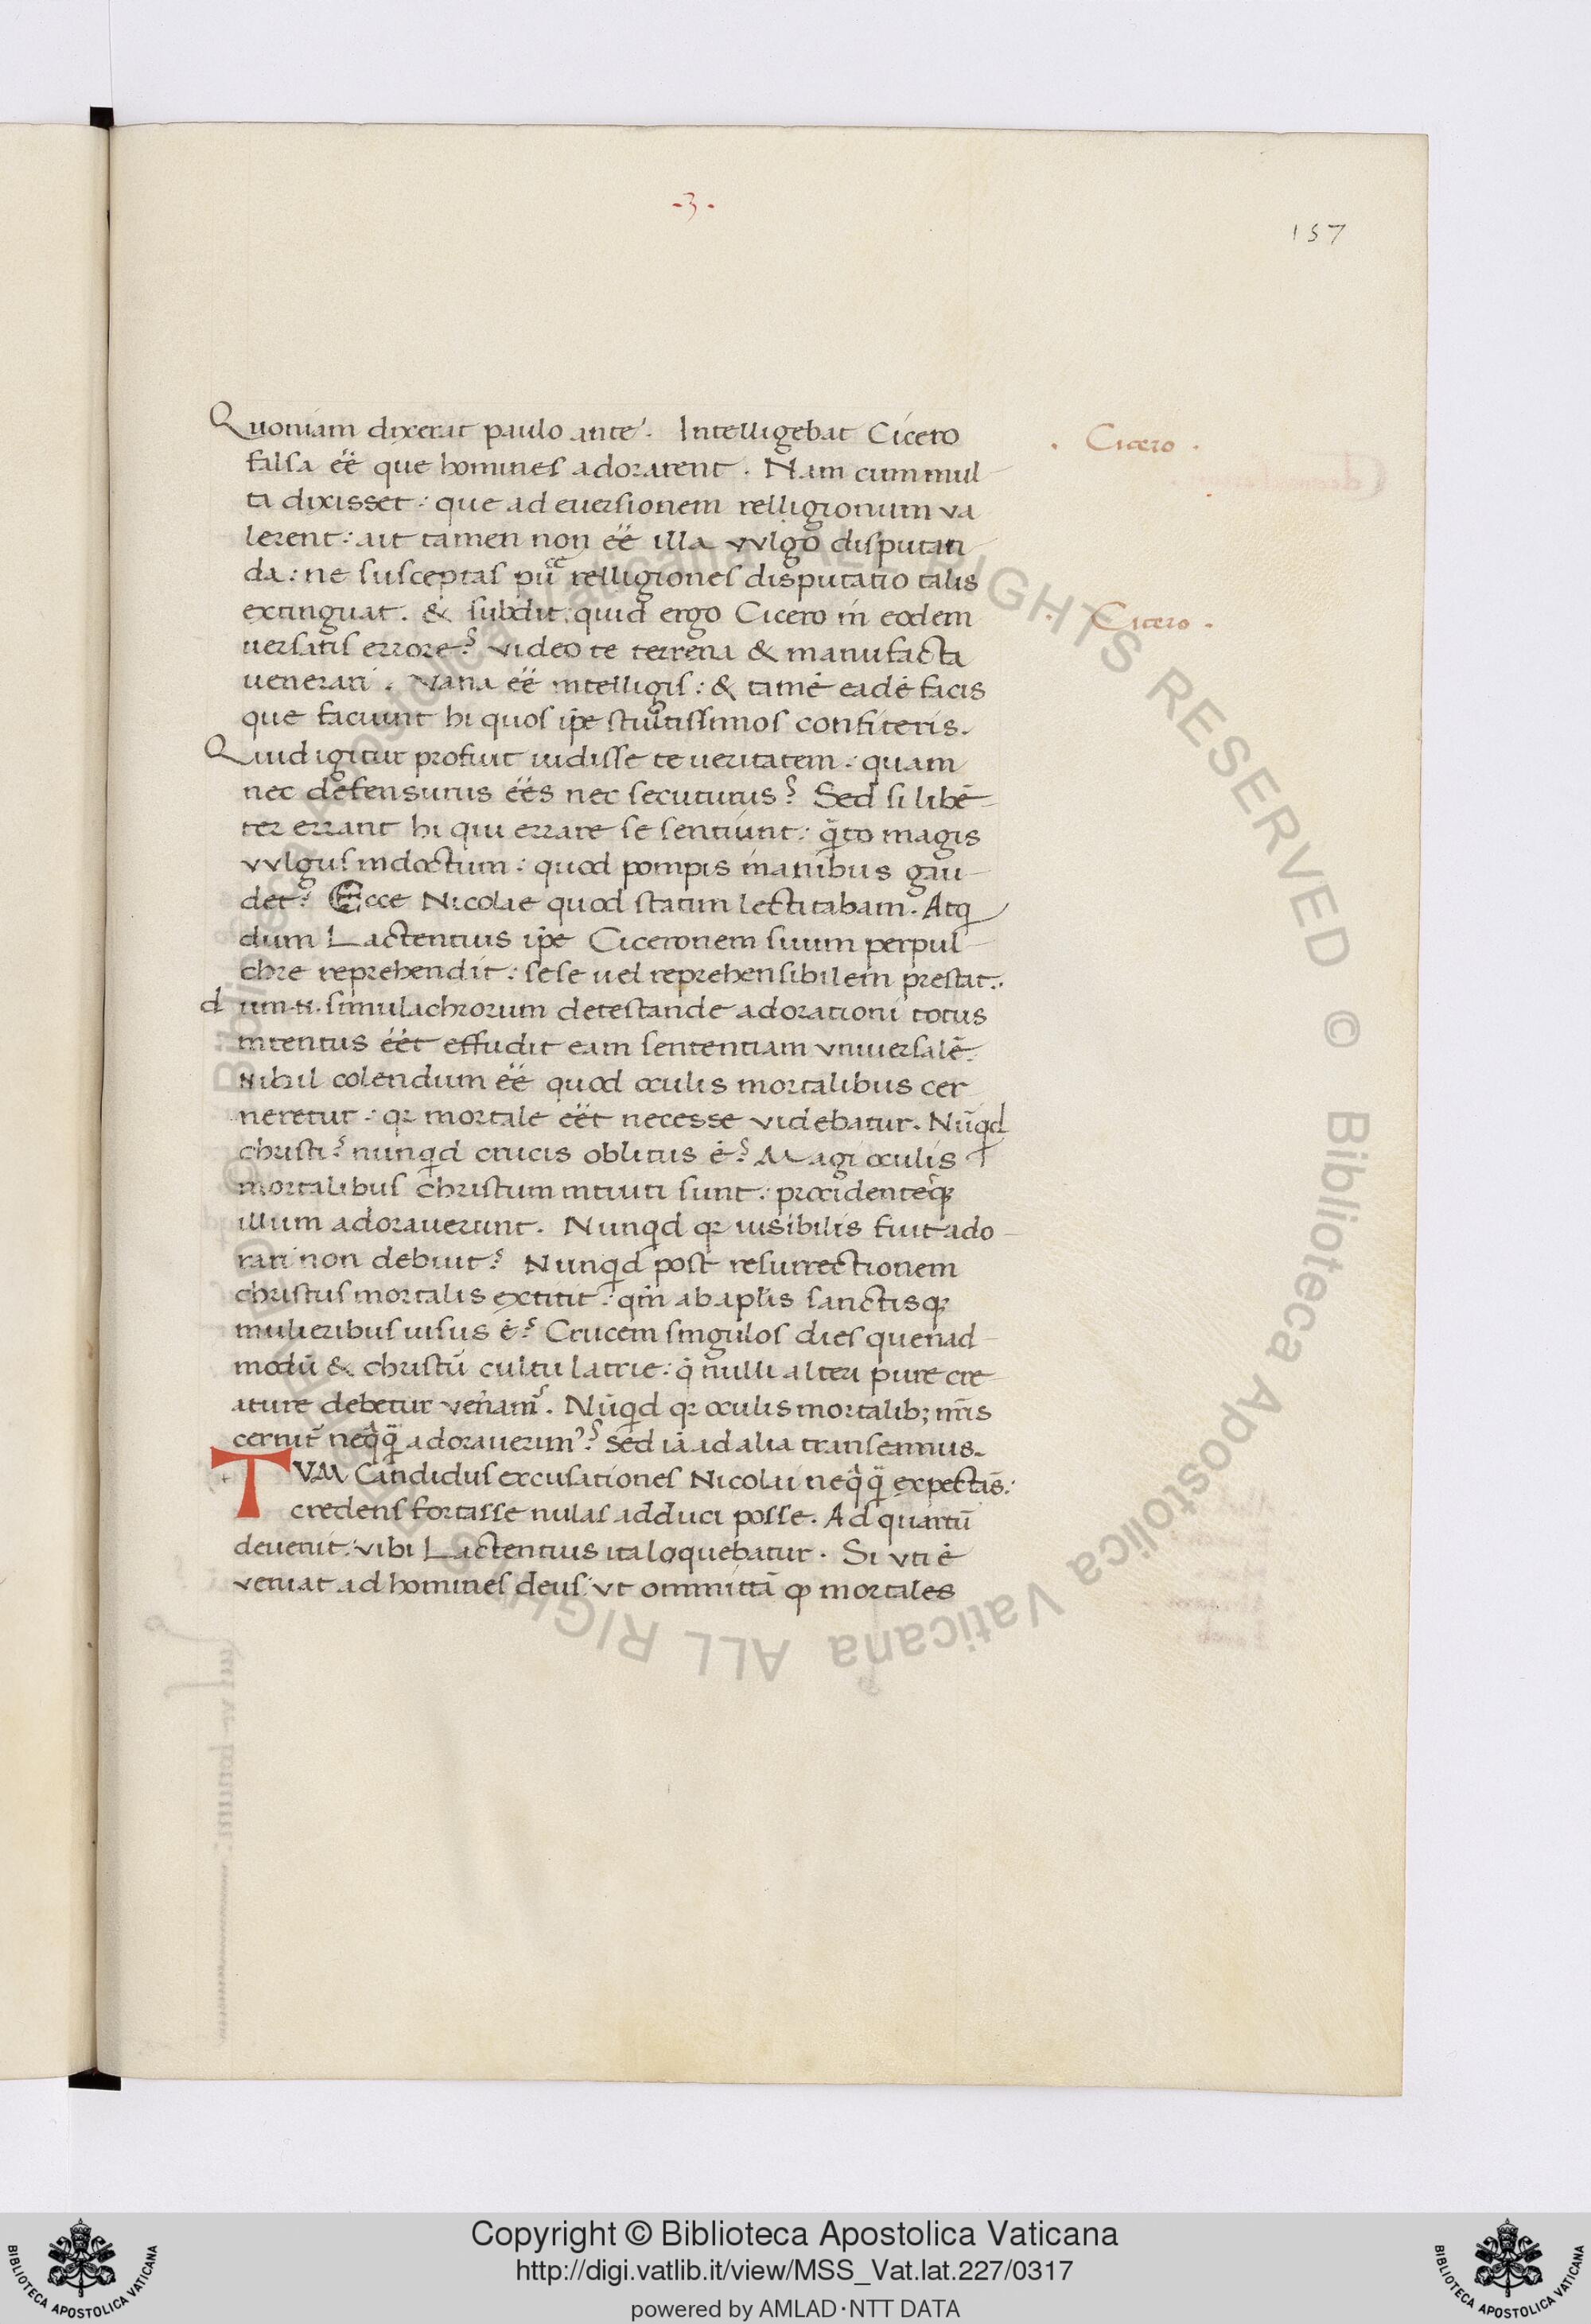 -3-
157
Quoniam dixerat paulo ante. Intelligebat Cicero
· Cicero ·
falsa ëë que homines adorarent. Nam cum mul-
ta dixisset: que ad euersionem relligionum va
lerent: ait tamen non ëë illa vvlgo disputan
da: ne susceptas pu͞ce relligiones disputatio talis
extinguat. & subdit: quid ergo Cicero in eodem
· Cicero ·
uersatis errore? video te terrena & manufacta
uenerari. Vana ëë intelligis: & tamē eadē facis
que faciunt hi quos ip̄e stultissimos confiteris.
Quid igitur profuit uidisse te ueritatem: quam
nec defensurus ëës nec secuturus? Sed si libē-
ter errant hi qui errare se sentiunt: q̄to magis
vvlgus indoctum: quod pompis inanibus gau-
det? Ecce Nicolae quod statim lectitabam. Atq
dum Lactentius ip̄e Ciceronem suum perpul-
chre reprehendit: sese uel reprehensibilem prestat:
dum .n. simulachrorum detestande adorationi totus
intentus ëët effudit eam sententiam vniuersalē.
Nihil colendum ëë quod oculis mortalibus cer
neretur: qr mortale ëët necesse videbatur. Nūqd
christi? nunqd crucis oblitus ē? Magi oculis
mortalibus christum intuiti sunt: procidentesq;
illum adorauerunt. Nunqd qr uisibilis fuit ado-
rari non debuit? Nunqd post resurrectionem
christus mortalis extitit: qm̄ ab aplis sanctisq;
mulieribus uisus ē? Crucem singulos dies quenad-
modū & christū cultu latrie: q̄ nulli alteri pure cre
ature debetur ven̄am͛. Nūqd qr oculis mortalib; nr̄is
cernit͛ neq̄q̄ adorauerim᾽? Sed iā ad alia transeamus.
TVM Candidus excusationes Nicolai neq̄q̄ expectās:
credens fortasse nulas adduci posse. Ad quartū
deuenit: vibi Lactentius ita loquebatur. Si vti ē
veniat ad homines deus: vt ommittā qp mortales
Copyright © Biblioteca Apostolica Vaticana
http://digi.vatlib.it/view/MSS_Vat.lat.227/0317
powered by AMLAD·NTT DATA